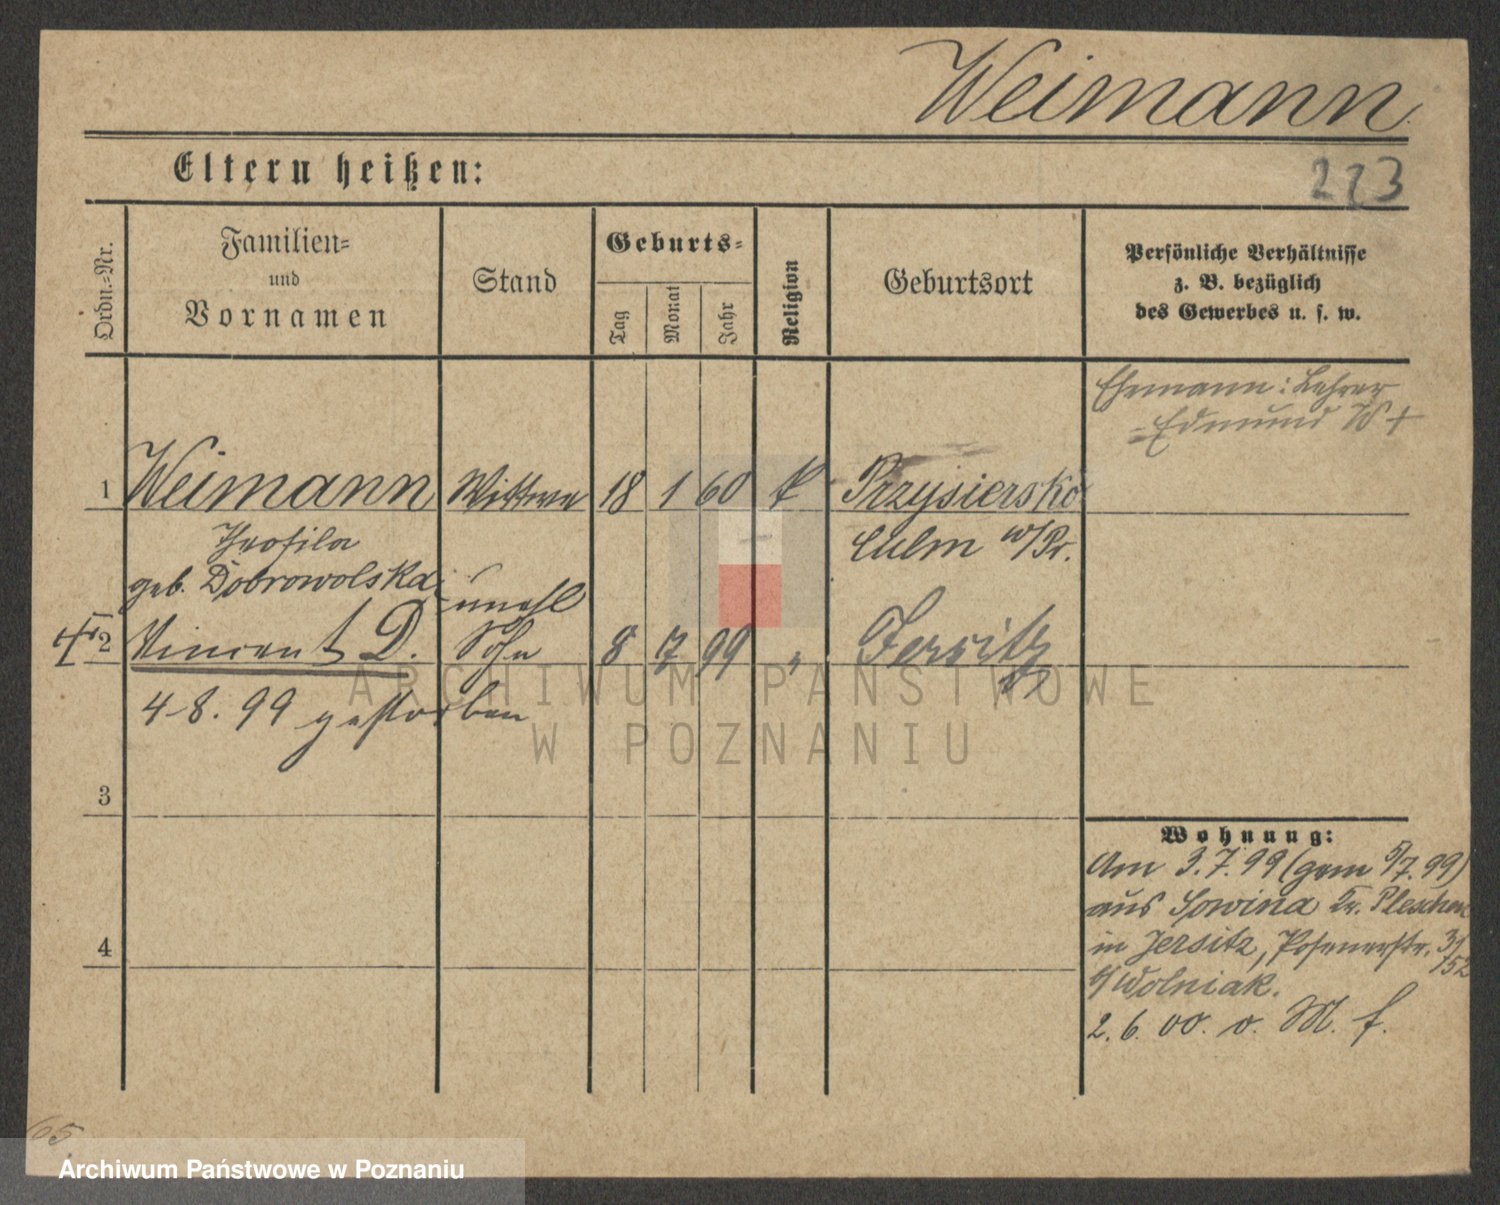 Weimann
Eltern heißen:
223
Ordn.-Nr.
Familien-
und
Vornamen
Stand
Geburts-
Tag
Monat
Jahr
Religion
Geburtsort
Persönliche Verhältnisse
z. B. bezüglich
des Gewerbes u. s. w.
Ehemann: Lehrer
Edmund W +
1 Weimann Wittwe 18 1 60 k Przysiersko
Teofila Culm w/Pr.
geb. Dobrowolska
unehl
2 Vincent D. Sohn 8 7 99 " Jersitz
4-8. 99 gestorben
ARCHIWUM PAŃSTWOWE
W POZNANIU
3
Wohnung:
Am 3.7.99 (gem 5/7.99)
aus Sowina Kr. Pleschen
in Jersitz, Posenerstr. 31/52
b/ Wolniak.
4
2. 6. 00. o. M. f.
65
Archiwum Państwowe w Poznaniu